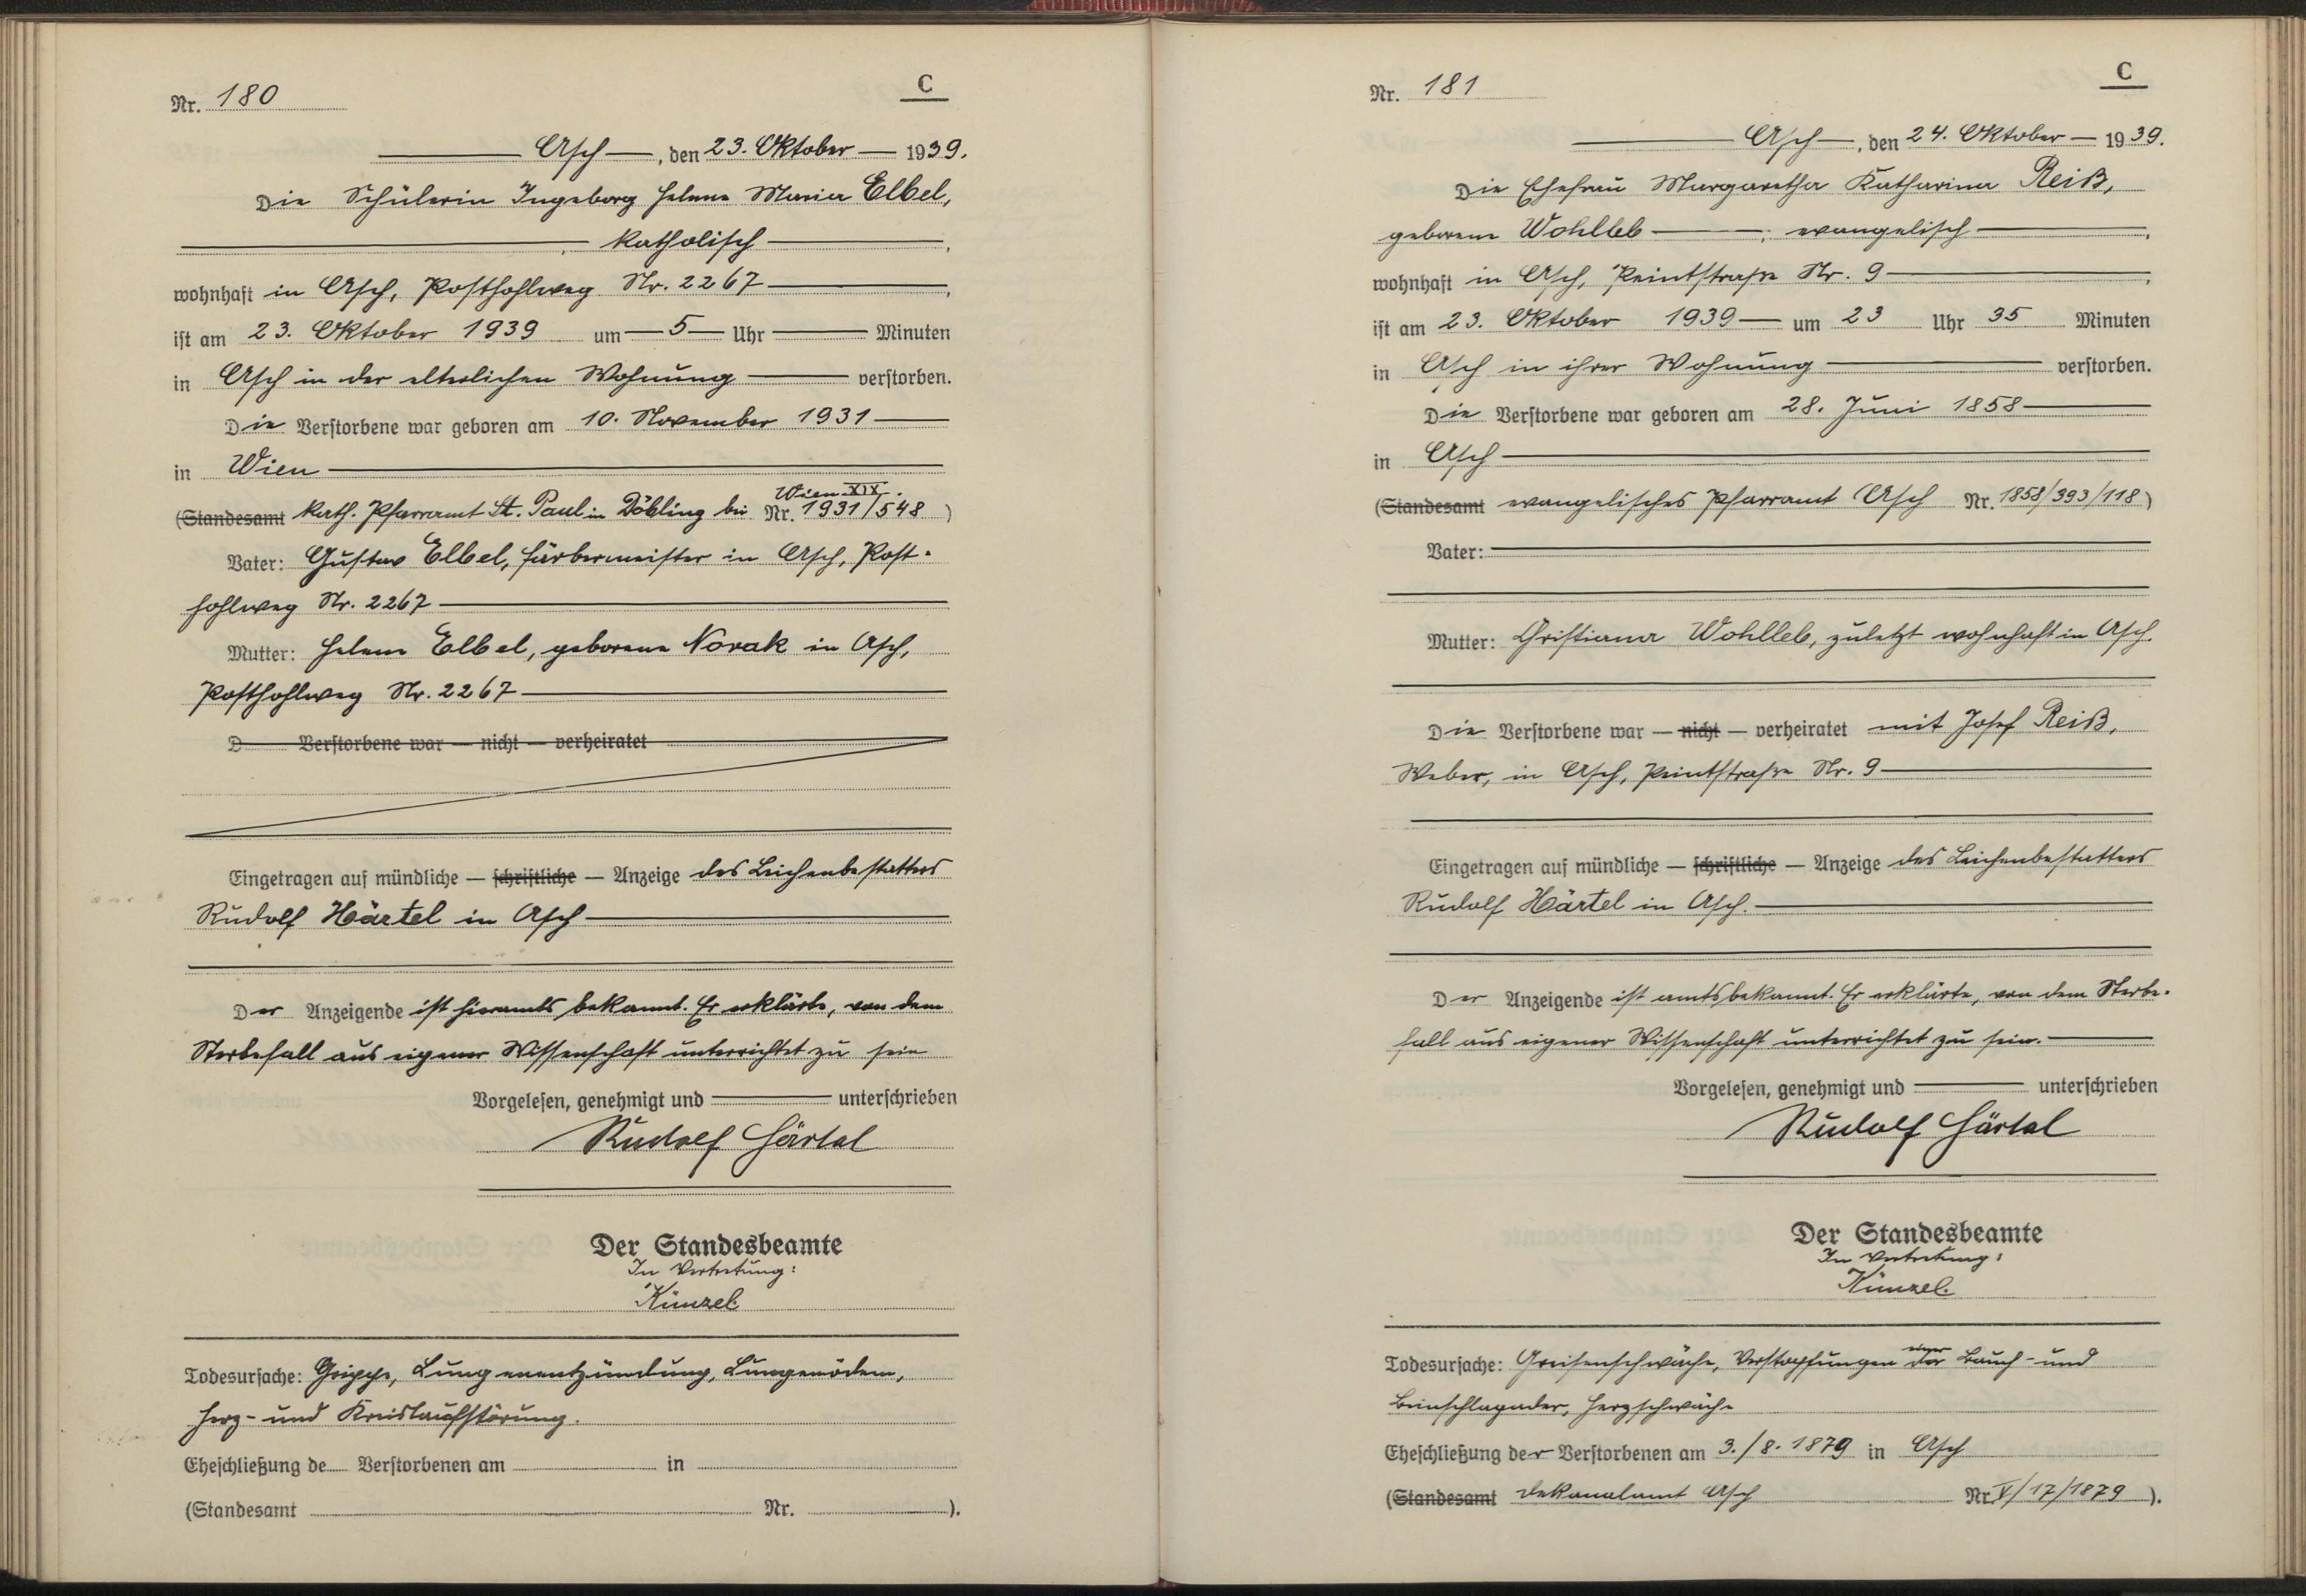 C
Nr. 180
Asch, den 23. Oktober 1939.
Die Schülerin Ingeborg Helene Maria Elbel,
, katholisch,
wohnhaft in Asch, Posthohlweg Nr. 2267,
ist am 23. Oktober 1939 um 5 Uhr Minuten
in Asch in der elterlichen Wohnung verstorben.
Die Verstorbene war geboren am 10. November 1931
in Wien
Wien XIX.
(Standesamt kath. Pfarramt St. Paul in Döbling bei Nr. 1931/548)
Vater: Gustav Elbel, Färbermeister in Asch, Post-
hohlweg Nr. 2267
Mutter: Helene Elbel, geborene Novak in Asch,
Posthohlweg Nr. 2267
D Verstorbene war — nicht — verheiratet
Eingetragen auf mündliche — schriftliche — Anzeige des Leichenbestatters
Rudolf Härtel in Asch
Der Anzeigende ist hieramts bekannt. Er erklärte, von dem
Sterbefall aus eigener Wissenschaft unterrichtet zu sein
Vorgelesen, genehmigt und unterschrieben
Rudolf Härtel
Der Standesbeamte
In Vertretung:
Künzel.
Todesursache: Grippe, Lungenentzündung, Lungenödem,
Herz- und Kreislaufstörung.
Eheschließung de Verstorbenen am in
(Standesamt Nr. ).
C
Nr. 181
Asch, den 24. Oktober 1939.
Die Ehefrau Margaretha Katharina Reiß,
geborene Wohlleb, evangelisch,
wohnhaft in Asch, Peintstraße Nr. 9,
ist am 23. Oktober 1939 um 23 Uhr 35 Minuten
in Asch in ihrer Wohnung verstorben.
Die Verstorbene war geboren am 28. Juni 1858
in Asch
(Standesamt evangelisches Pfarramt Asch Nr. 1858/393/118)
Vater:
Mutter: Christiana Wohlleb, zuletzt wohnhaft in Asch.
Die Verstorbene war — nicht — verheiratet mit Josef Reiß,
Weber, in Asch, Peintstraße Nr. 9
Eingetragen auf mündliche — schriftliche — Anzeige des Leichenbestatters
Rudolf Härtel in Asch.
Der Anzeigende ist amtsbekannt. Er erklärte, von dem Sterbe-
fall aus eigener Wissenschaft unterrichtet zu sein.
Vorgelesen, genehmigt und unterschrieben
Rudolf Härtel
Der Standesbeamte
In Vertretung:
Künzel.
Todesursache: Greisenschwäche, Verstopfungen der Bauch- und
Beinschlagader, Herzschwäche
Eheschließung der Verstorbenen am 3./8. 1879 in Asch
(Standesamt Dekanalamt Asch Nr. V/17/1879 ).